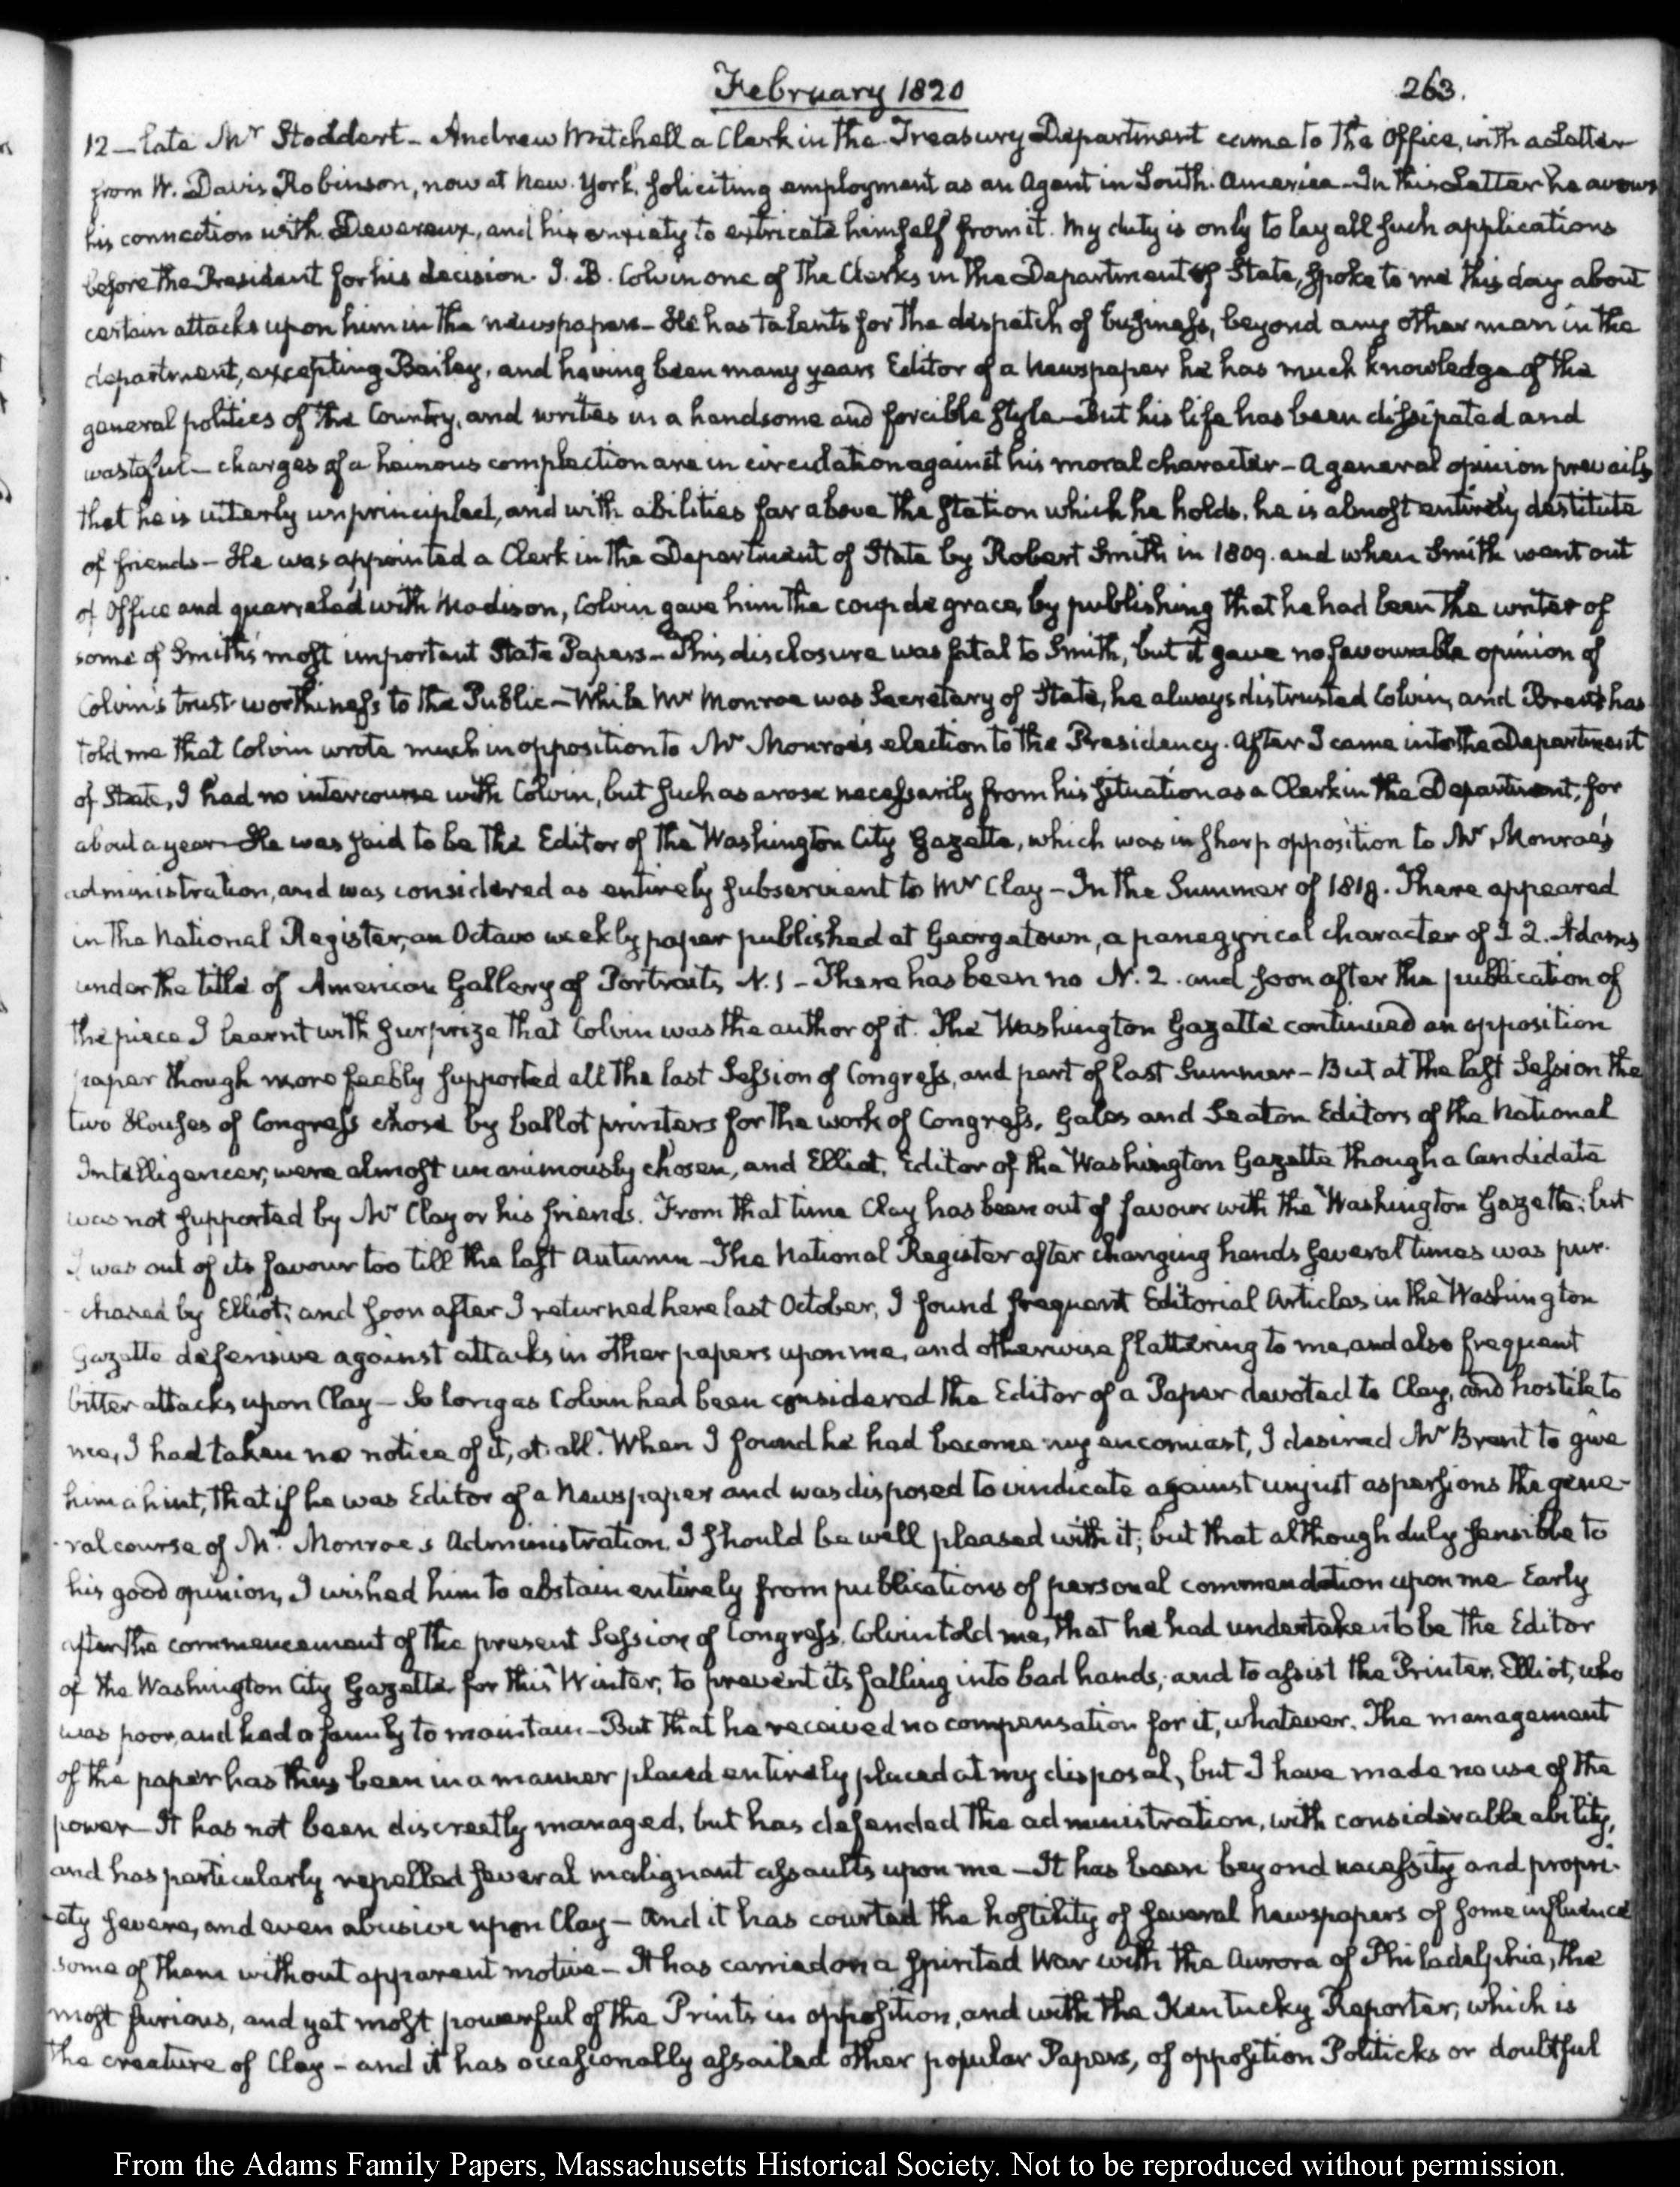 February 1820
263.
12 — late Mr Stoddert - Andrew Mitchell a Clerk in the Treasury Department came to the Office, with a Letter
from W. Davis Robinson, now at New-York, soliciting employment as an Agent in South-America - In this Letter he avows
his connection with Devereux, and his anxiety to extricate himself from it. My duty is only to lay all such applications
before the President for his decision. J. B. Colvin one of the Clerks in the Department of State, spoke to me this day about
certain attacks upon him in the newspapers - He has talents for the dispatch of business, beyond any other man in the
department, excepting Bailey, and having been many years Editor of a Newspaper he has much knowledge of the
general politics of the Country, and writes in a handsome and forcible style - But his life has been dissipated and
wasteful - charges of a heinous complection are in circulation against his moral character - A general opinion prevails
that he is utterly unprincipled, and with abilities far above the station which he holds, he is almost entirely destitute
of friends - He was appointed a Clerk in the Department of State by Robert Smith in 1809. and when Smith went out
of Office and quarreled with Madison, Colvin gave him the coup de grace, by publishing that he had been the writer of
some of Smith's most important State Papers - This disclosure was fatal to Smith, but it gave no favourable opinion of
Colvin's trust-worthiness to the Public - While Mr Monroe was Secretary of State, he always distrusted Colvin, and Brent has
told me that Colvin wrote much in opposition to Mr Monroe's election to the Presidency. After I came into the Department
of State, I had no intercourse with Colvin, but such as arose necessarily from his situation as a Clerk in the Department, for
about a year - He was said to be the Editor of the Washington City Gazette, which was in sharp opposition to Mr Monroe's
administration, and was considered as entirely subservient to Mr Clay - In the Summer of 1818. There appeared
in the National Register, an Octavo weekly paper published at Georgetown, a panegyrical character of J. Q. Adams,
under the title of American Gallery of Portraits, N. 1 - There has been no N. 2. and soon after the publication of
the piece I learnt with surprize that Colvin was the author of it. The Washington Gazette continued an opposition
paper though more feebly supported all the last Session of Congress, and part of last Summer - But at the last Session the
two Houses of Congress chose by ballot printers for the work of Congress. Gales and Seaton Editors of the National
Intelligencer, were almost unanimously chosen, and Elliot, Editor of the Washington Gazette though a Candidate
was not supported by Mr Clay or his friends. From that time Clay has been out of favour with the Washington Gazette; but
I was out of its favour too till the last Autumn - The National Register after changing hands several times was pur-
-chased by Elliot; and soon after I returned here last October, I found frequent Editorial Articles in the Washington
Gazette defensive against attacks in other papers upon me, and otherwise flattering to me, and also frequent
bitter attacks upon Clay - So long as Colvin had been considered the Editor of a Paper devoted to Clay, and hostile to
me, I had taken no notice of it, at all. When I found he had become my encomiast, I desired Mr Brent to give
him a hint, that if he was Editor of a Newspaper and was disposed to vindicate against unjust aspersions the gene-
-ral course of Mr Monroe's Administration, I should be well pleased with it; but that although duly sensible to
his good opinion, I wished him to abstain entirely from publications of personal commendation upon me - Early
after the commencement of the present Session of Congress, Colvin told me, that he had undertaken to be the Editor
of the Washington City Gazette for this Winter, to prevent its falling into bad hands, and to assist the Printer, Elliot, who
was poor, and had a family to maintain - But that he received no compensation for it, whatever. The management
of the paper has thus been in a manner placed entirely placed at my disposal, but I have made no use of the
power - It has not been discreetly managed, but has defended the administration, with considerable ability,
and has particularly repelled several malignant assaults upon me - It has been beyond necessity and propri-
-ety severe, and even abusive upon Clay - And it has courted the hostility of several Newspapers of some influence
some of them without apparent motive - It has carried on a spirited War with the Aurora of Philadelphia, the
most furious, and yet most powerful of the Prints in opposition, and with the Kentucky Reporter, which is
the creature of Clay - and it has occasionally assailed other popular Papers, of opposition Politicks or doubtful
From the Adams Family Papers, Massachusetts Historical Society. Not to be reproduced without permission.